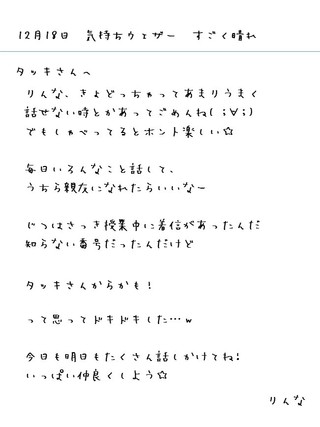 12月18日 気持ちウェザー すごく晴れ
タッキさんへ
りんな、きょどっちゃってあまりうまく
話せない時とかあってごめんね( ;∀;)
でもしゃべってるとホント楽しい☆
毎日いろんなこと話して、
うちら親友になれたらいいなー
じつはさっき授業中に着信があったんだ
知らない番号だったんだけど
タッキさんからかも！
って思ってドキドキした…w
今日も明日もたくさん話しかけてね！
いっぱい仲良くしよう☆
りんな